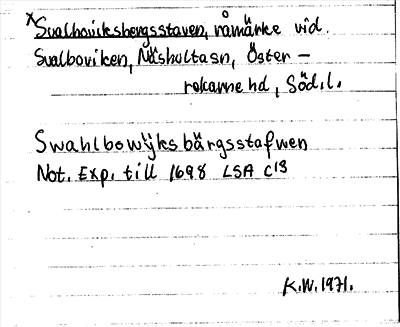 x Svalboviksbergsstaven, råmärke vid
Svalboviken, Näshultasn, Öster-
rekarne hd, Södl.
Swahlbowÿksbärgsstafwen
Not. Exp. till 1698 LSA C13
K.W. 1971.